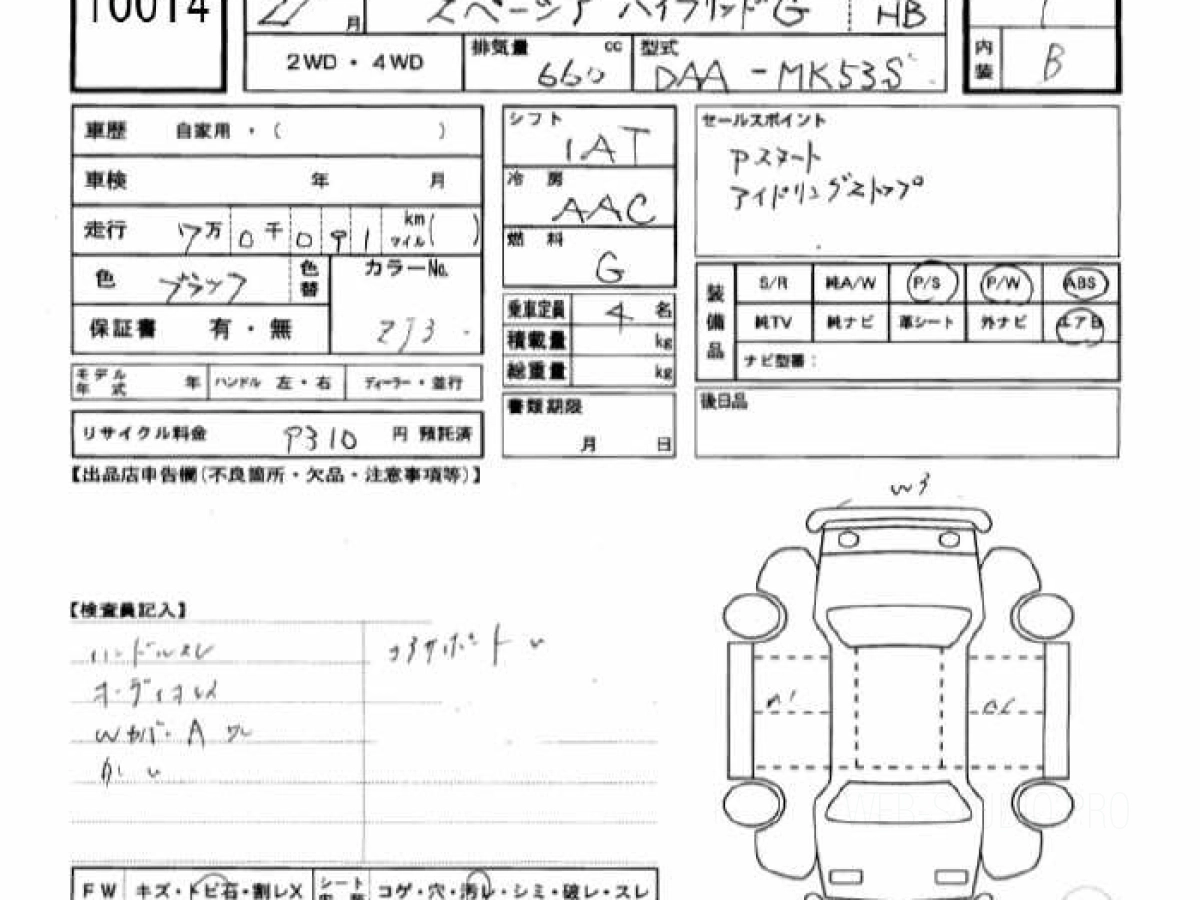 10014
月 スペーシア ハイブリッドG HB
2WD・4WD 排気量 cc 660 型式 DAA-MK53S 内装 B
車歴 自家用・( )
車検 年 月
走行 7万0千091 km マイル( )
色 ブラック 色替 カラーNo. ZJ3
保証書 有・無
モデル年式 年 ハンドル 左・右 ディーラー・並行
リサイクル料金 9310 円 預託済
シフト IAT
冷房 AAC
燃料 G
乗車定員 4 名
積載量 kg
総重量 kg
書類期限 月 日
セールスポイント
Pスタート
アイドリングストップ
装備品 S/R 純A/W P/S P/W ABS
純TV 純ナビ 革シート 外ナビ エアB
ナビ型番:
後日品
【出品店申告欄(不良箇所・欠品・注意事項等)】
W3
【検査員記入】
ハンドルスレ
コアサポート
オーディオレス
Wカバー A
A1
WEB-STUDIO PRO
FW キズ・トビ石・割レX シート コゲ・穴・汚レ・シミ・破レ・スレ